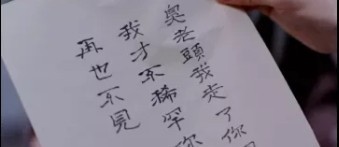 臭老頭我走了你
我才不稀罕你
再也不見